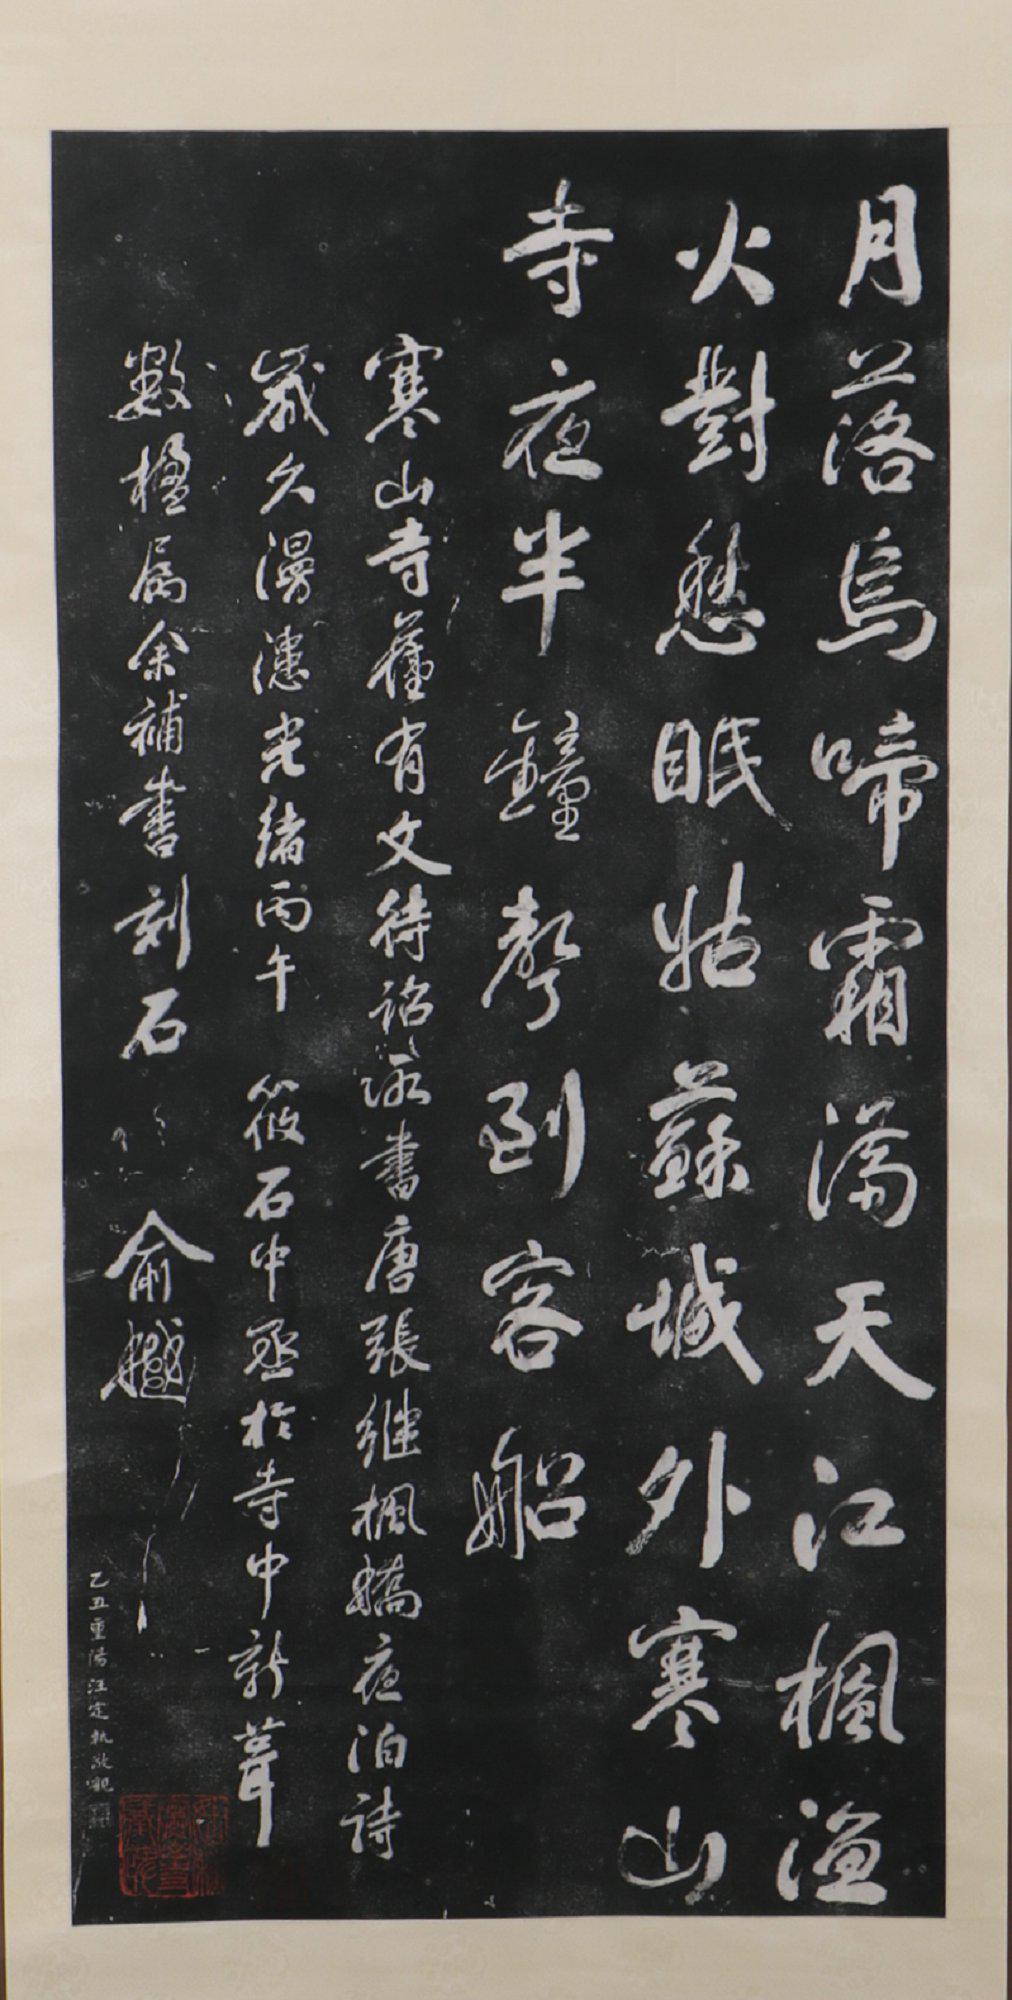 月落烏啼霜滿天江楓漁
火對愁眠姑蘇城外寒山
寺夜半鐘聲到客船
寒山寺舊有文待詔所書唐張繼楓橋夜泊詩
歲久漫漶光緒丙午筱石中丞於寺中新葺
數楹屬余補書刻石俞樾
乙丑重陽汪定執敬觀